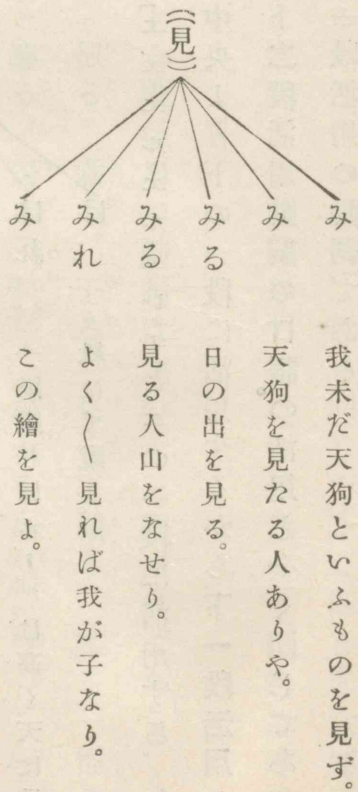 (見)
み 我未だ天狗といふものを見ず。
み 天狗を見たる人ありや。
みる 日の出を見る。
みる 見る人山をなせり。
みれ よく〳〵見れば我が子なり。
み この繪を見よ。